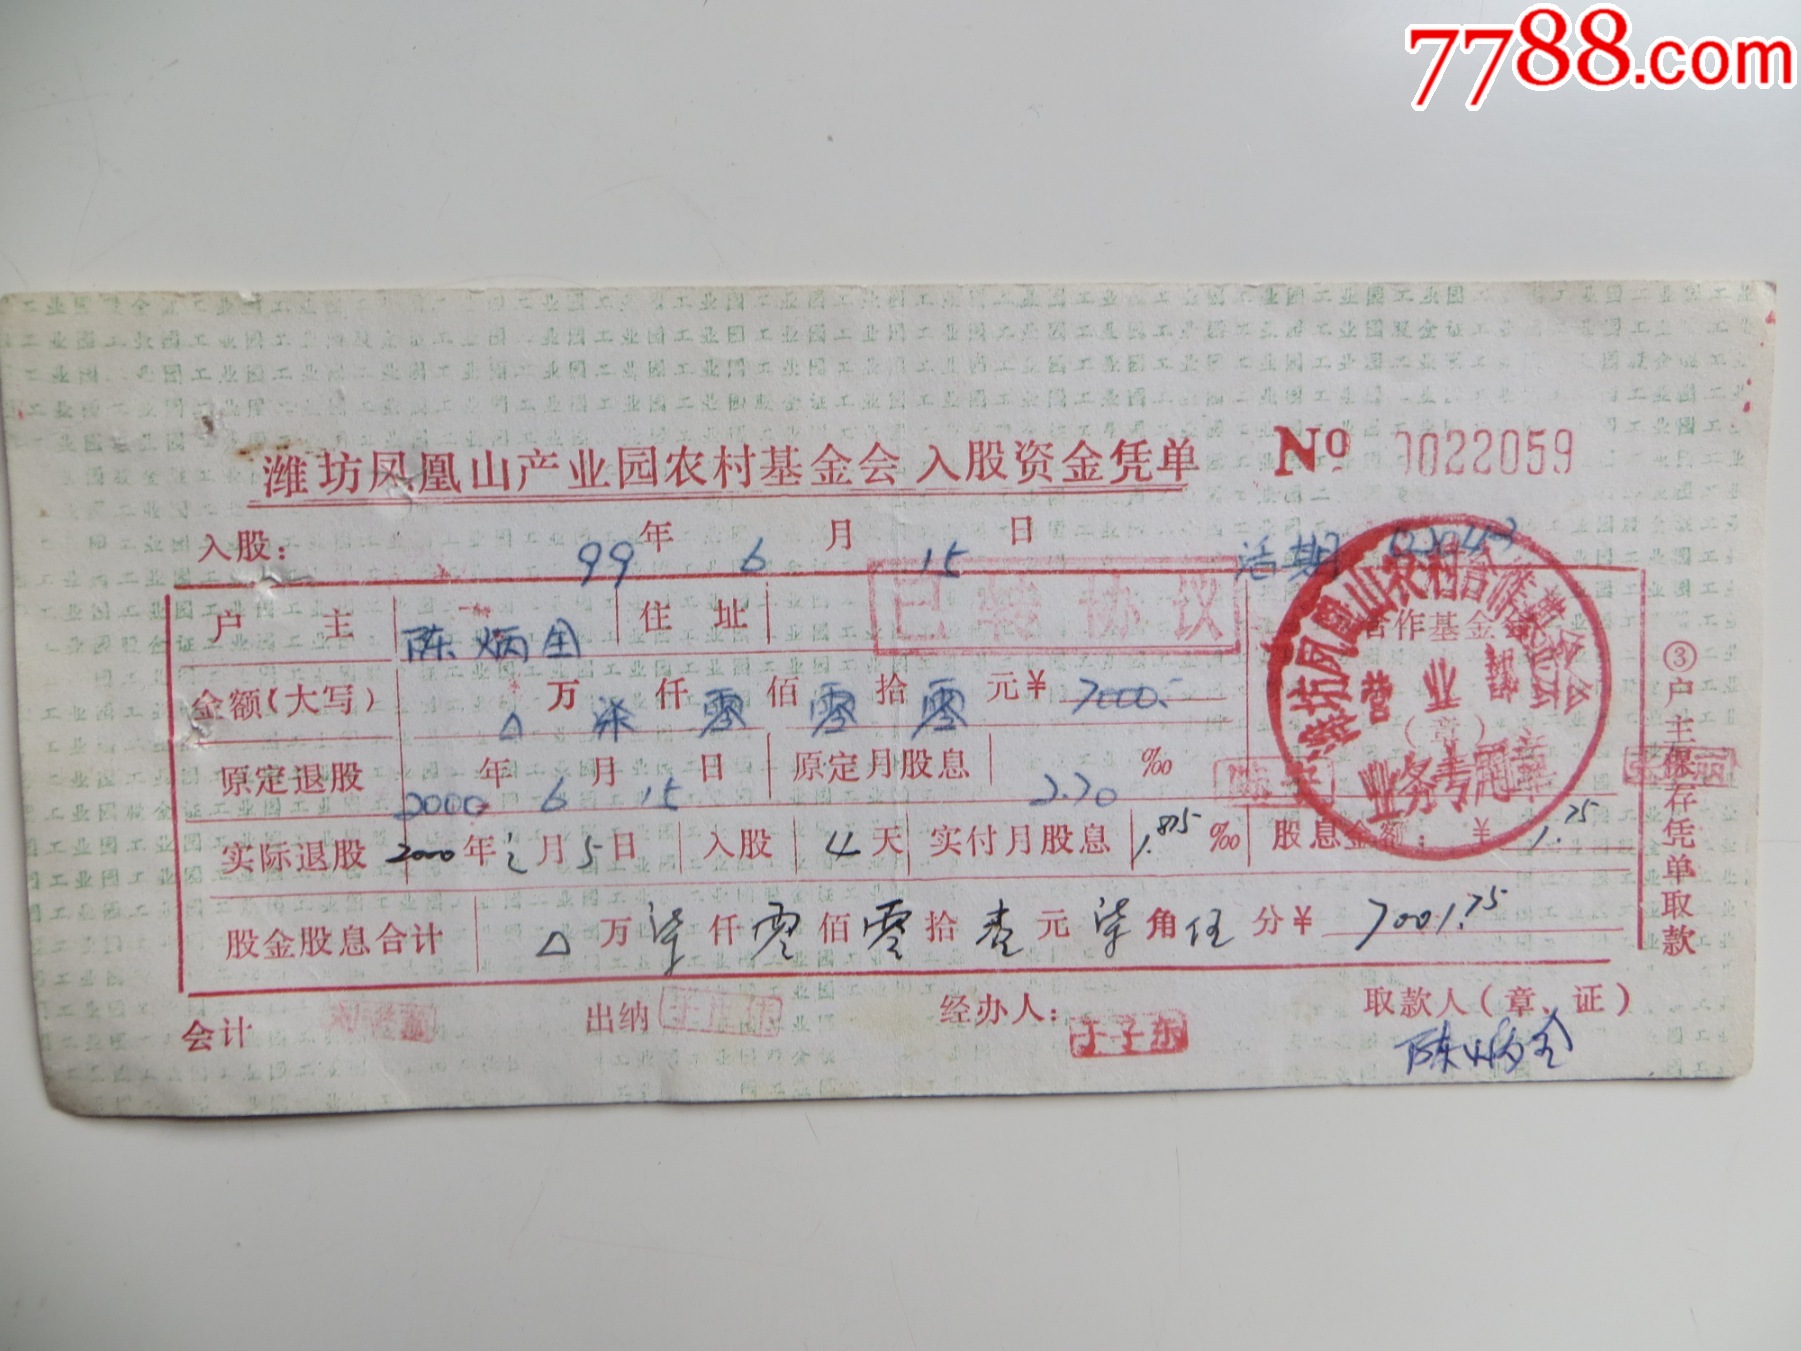 7788.com
潍坊凤凰山产业园农村基金会 入股资金凭单 № 0022059
入股： 99 年 6 月 15 日 活期
户主 陈炳全 住址 已转协议
合作基金会
(章)
潍坊凤凰山农村合作基金会
营业
业务专用章
金额(大写) △万柒仟零佰零拾零元¥ 7000.-
原定退股 2000年6月15日 原定月股息 2.70 ‰
实际退股 2000年 月5日 入股 4天 实付月股息 1.875‰ 股息金额：¥ 1.75
股金股息合计 △万柒仟零佰零拾壹元柒角伍分¥ 7001.75
③户主保存凭单取款
会计 出纳 经办人： 取款人(章、证)
陈炳全